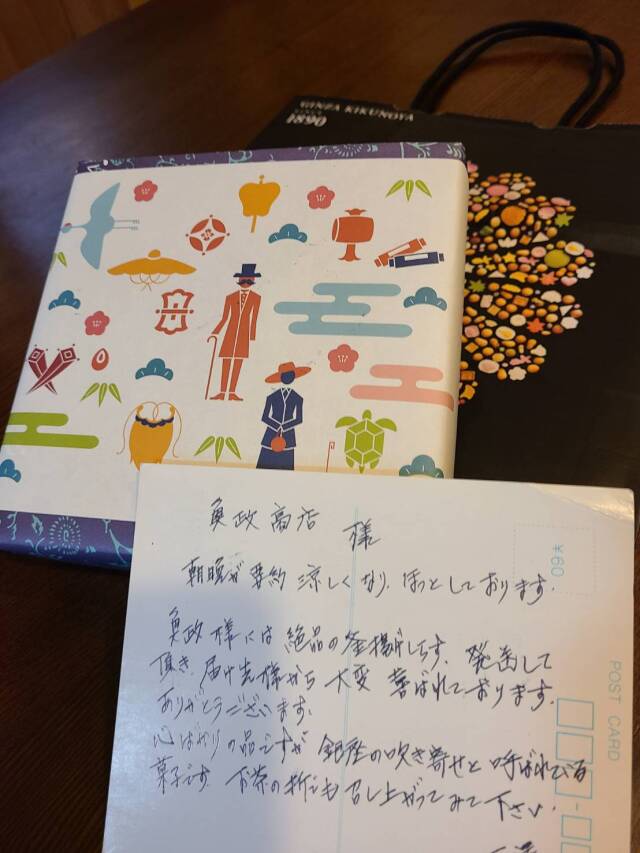 GINZA KIKUNOYA
1890
魚政商店
様
朝晩が 要約 涼しくなり、ほっとしております。
魚政様には 絶品の釜揚げしらす、発送して
頂き、届け先様から 大変 喜ばれております。
ありがとうございます。
心ばかりの品ですが 銀座の吹き寄せと呼ばれている
菓子です。お茶の折にも召し上がってみて下さい。
POST CARD